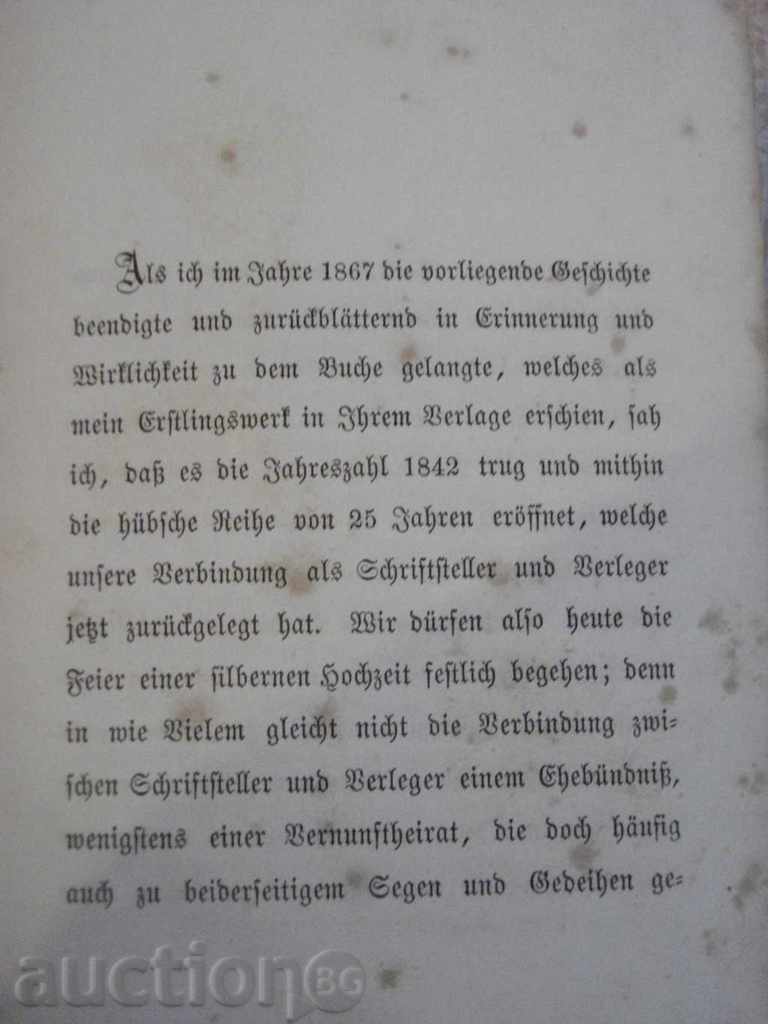 Als ich im Jahre 1867 die vorliegende Geschichte
beendigte und zurückblätternd in Erinnerung und
Wirklichkeit zu dem Buche gelangte, welches als
mein Erstlingswerk in Ihrem Verlage erschien, sah
ich, daß es die Jahreszahl 1842 trug und mithin
die hübsche Reihe von 25 Jahren eröffnet, welche
unsere Verbindung als Schriftsteller und Verleger
jetzt zurückgelegt hat. Wir dürfen also heute die
Feier einer silbernen Hochzeit festlich begehen; denn
in wie Vielem gleicht nicht die Verbindung zwi-
schen Schriftsteller und Verleger einem Ehebündniß,
wenigstens einer Vernunftheirat, die doch häufig
auch zu beiderseitigem Segen und Gedeihen ge-
auction BG